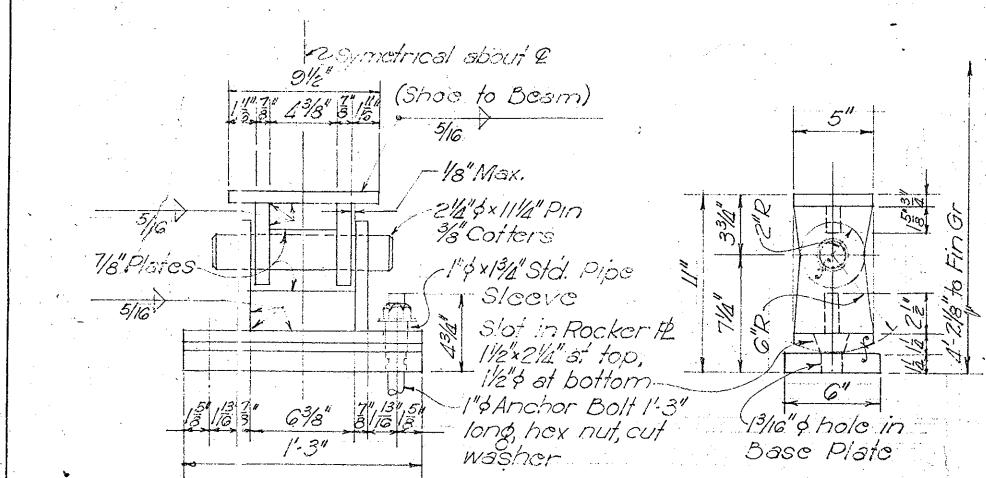 Symetrical about ℄
9½"
(Shoe to Beam)
7/8" 4⅜" 7/8"
5/16
1/8" Max.
5/16
2¼"φ×11¼" Pin
⅜" Cotters
7/8" Plates
1"φ×1¾" Std. Pipe
Sleeve
5/16
4¾"
Slot in Rocker ℄
1½"×2¼" at top,
1½"φ at bottom
1"φ Anchor Bolt 1'-3"
long, hex nut, cut
washer
1⅝" 1 13/16" 7/8" 6⅜" 7/8" 1 13/16" 1⅝"
1'-3"
5"
3¾"
2"R
¾"
1⅝"
11"
7¼"
6"R
2½"
1¼"
1½"
4'-2⅛" to Fin Gr
6"
1 3/16"φ hole in
Base Plate